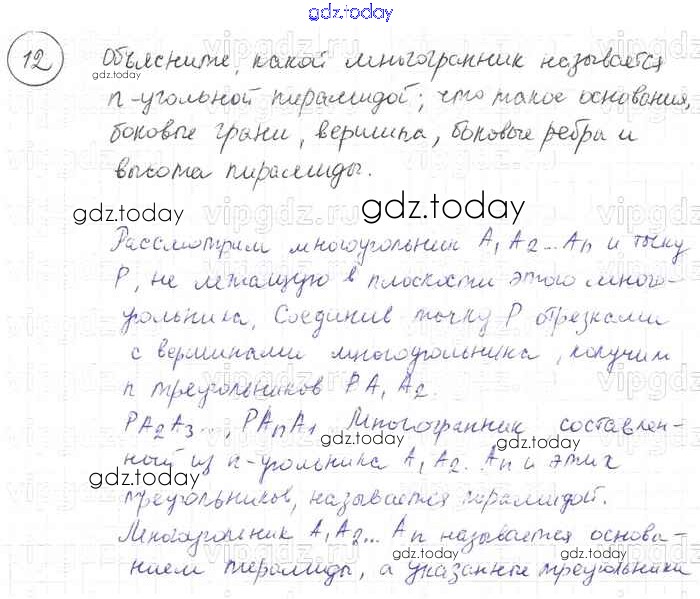 gdz.today
12 Объясните, какой многогранник называется
n-угольной пирамидой; что такое основания,
боковые грани, вершина, боковые ребра и
высота пирамиды.
gdz.today
gdz.today
Рассмотрим многоугольник A₁A₂...Aₙ и точку
P, не лежащую в плоскости этого много-
угольника. Соединив точку P отрезками
с вершинами многоугольника, получим
n треугольников PA₁A₂.
PA₂A₃..., PAₙA₁. Многогранник составлен-
ный из n-угольника A₁A₂. Aₙ и этих
треугольников, называется пирамидой.
Многоугольник A₁A₂... Aₙ называется основа-
нием пирамиды, а указанные треугольники